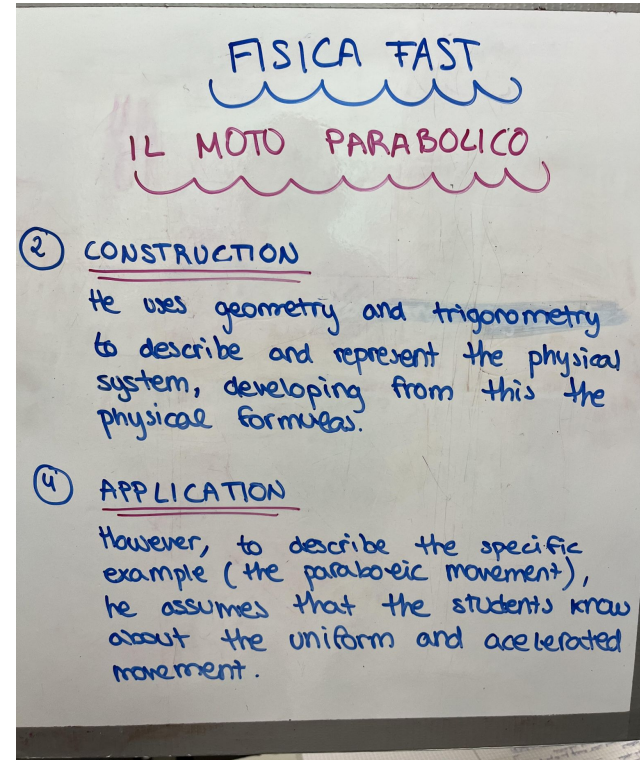 FISICA FAST
IL MOTO PARABOLICO
2 CONSTRUCTION
He uses geometry and trigonometry
to describe and represent the physical
system, developing from this the
physical formulas.
4 APPLICATION
However, to describe the specific
example (the parabolic movement),
he assumes that the students know
about the uniform and acelerated
movement.